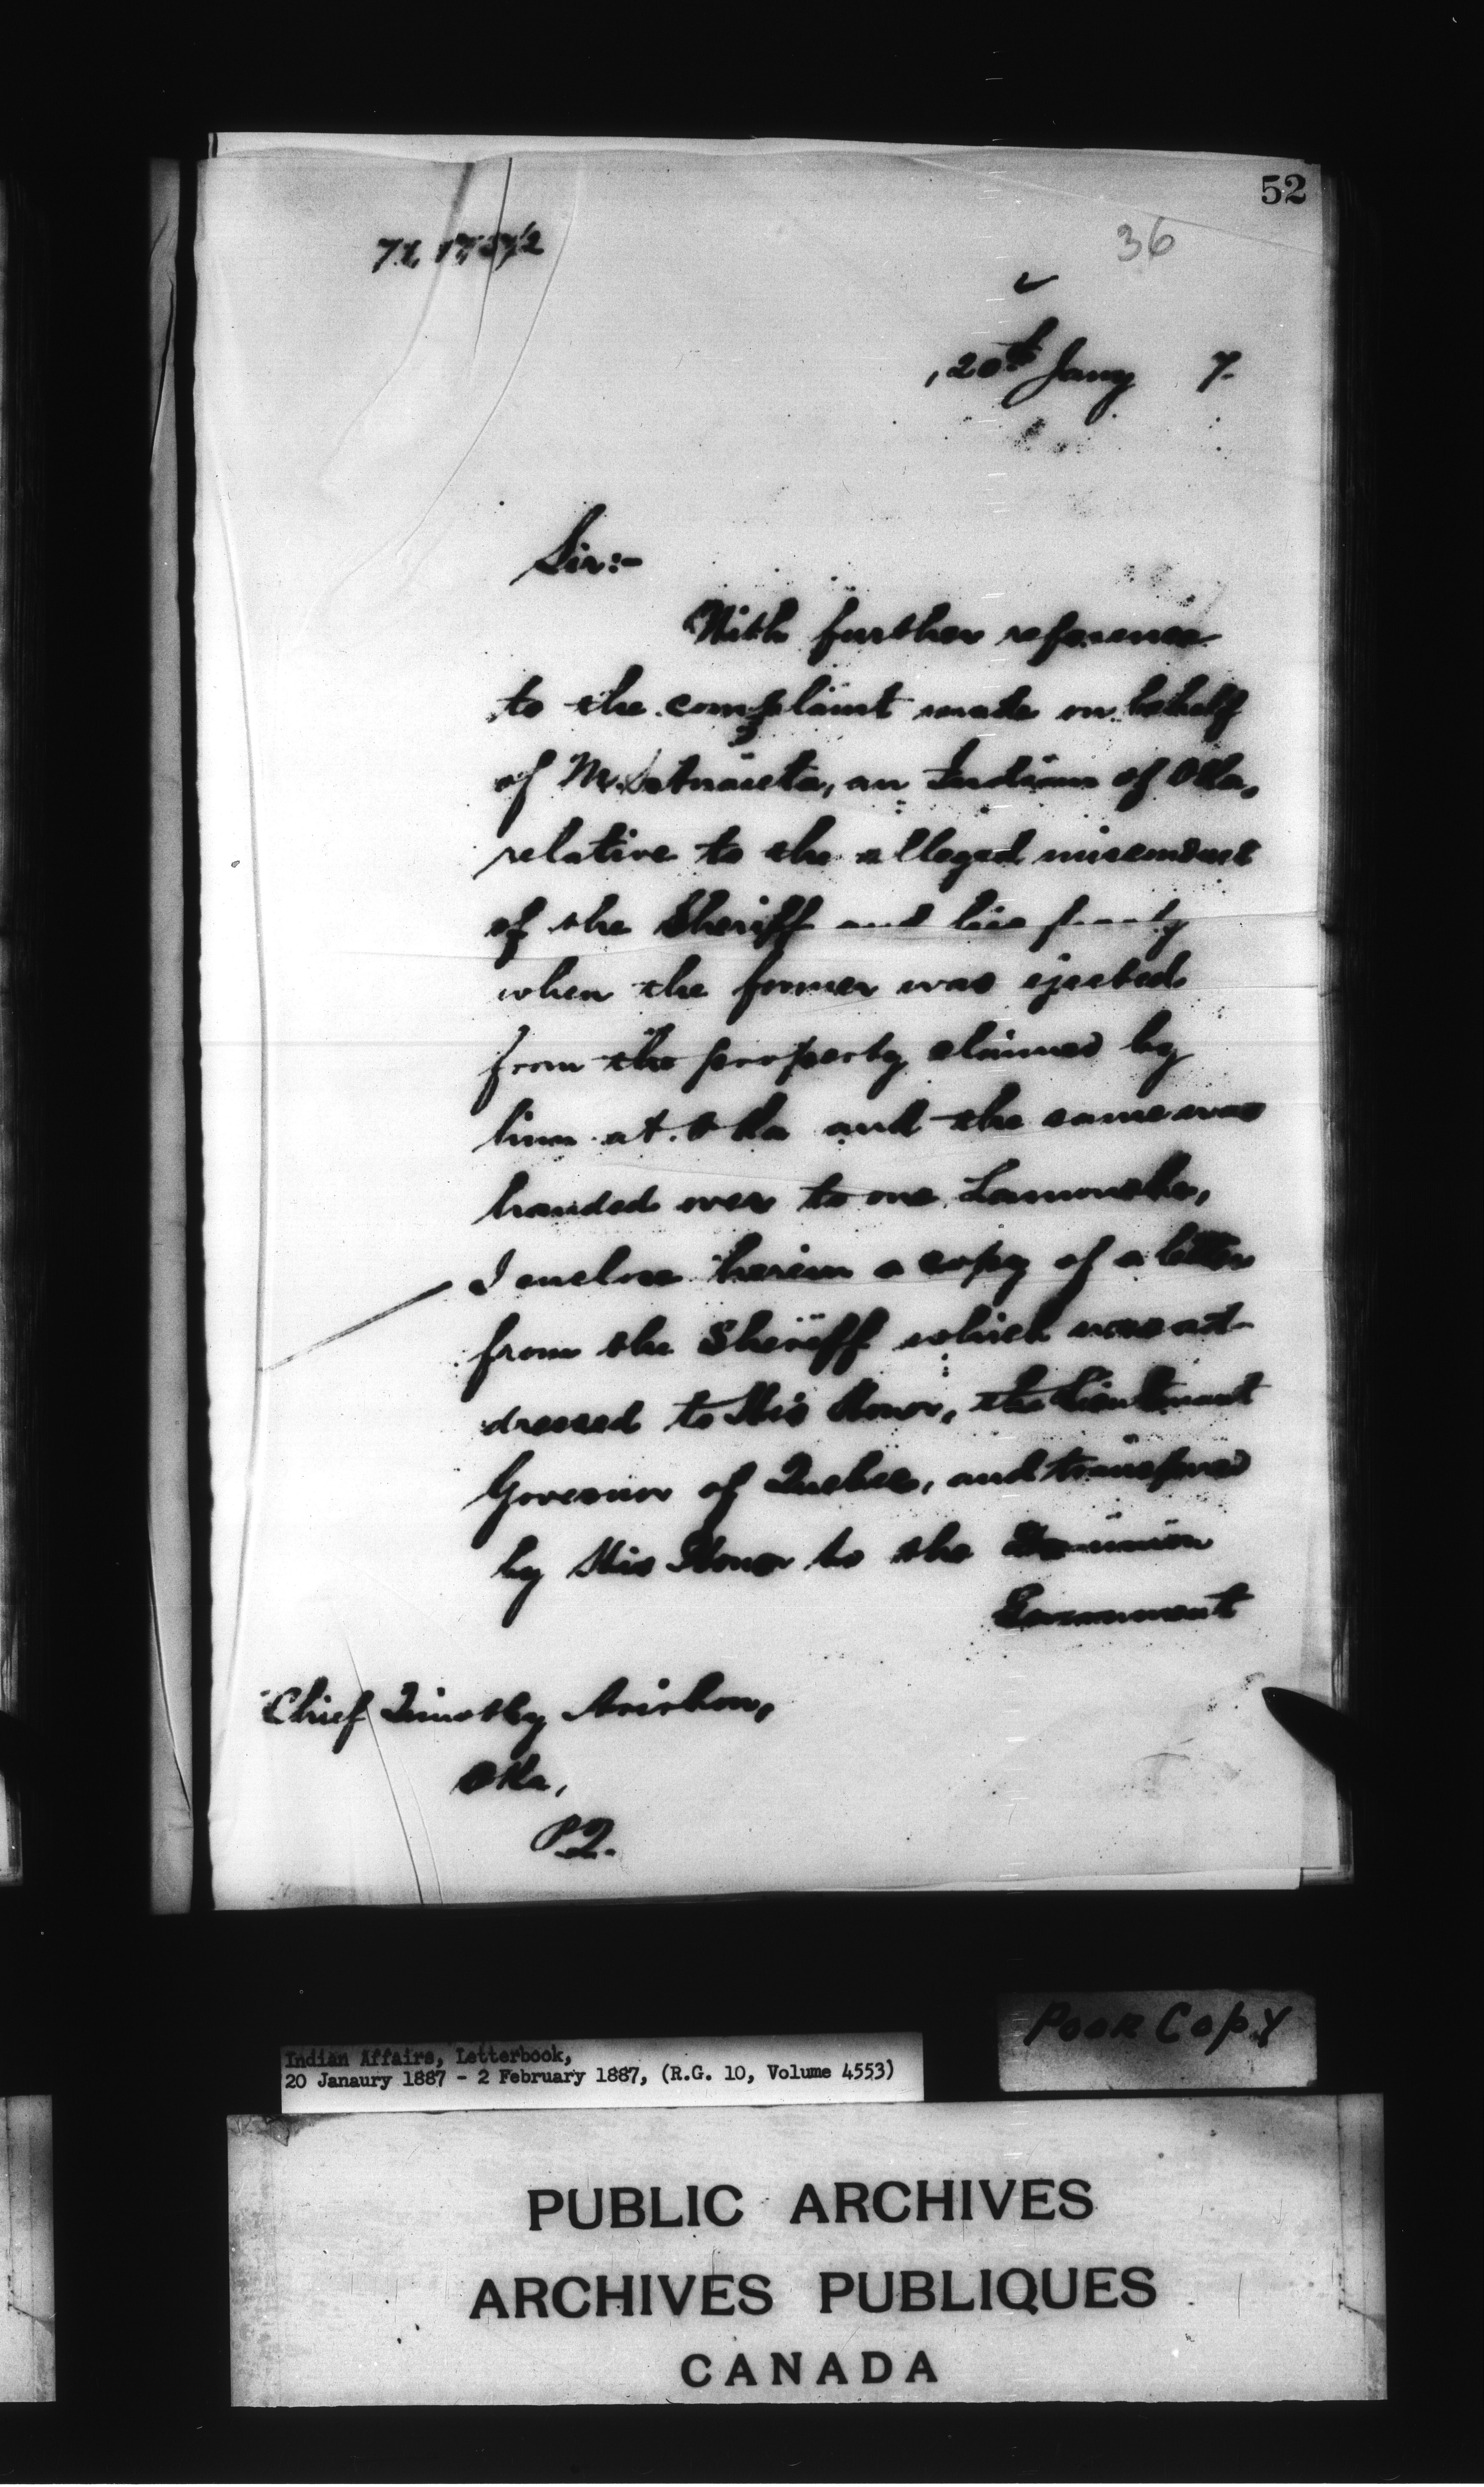 52
36
20th Jany 7.
Sir:-
With further reference
to the complaint made on behalf
of M. an Indian of Oka,
relative to the alleged misconduct
of the Sheriff and his party
when the former was ejected
from the property claimed by
him at Oka and the same was
handed over to one Lamouche,
I enclose herein a copy of a letter
from the Sheriff which was ad-
dressed to His Honor, the Lieutenant
Governor of Quebec, and transferred
by His Honor to the Dominion
Government
Chief Timothy Arirhon,
Oka,
P.Q.
Poor Copy
Indian Affairs, Letterbook,
20 Janaury 1887 - 2 February 1887, (R.G. 10, Volume 4553)
PUBLIC ARCHIVES
ARCHIVES PUBLIQUES
CANADA